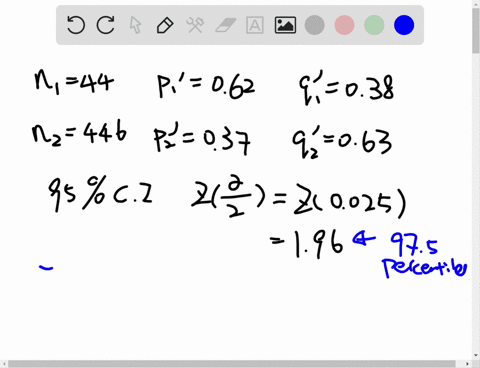 n₁=44 p₁'=0.62 q₁'=0.38
n₂=446 p₂'=0.37 q₂'=0.63
95% C.I z(α/2) = z(0.025)
= 1.96 ← 97.5
percentile